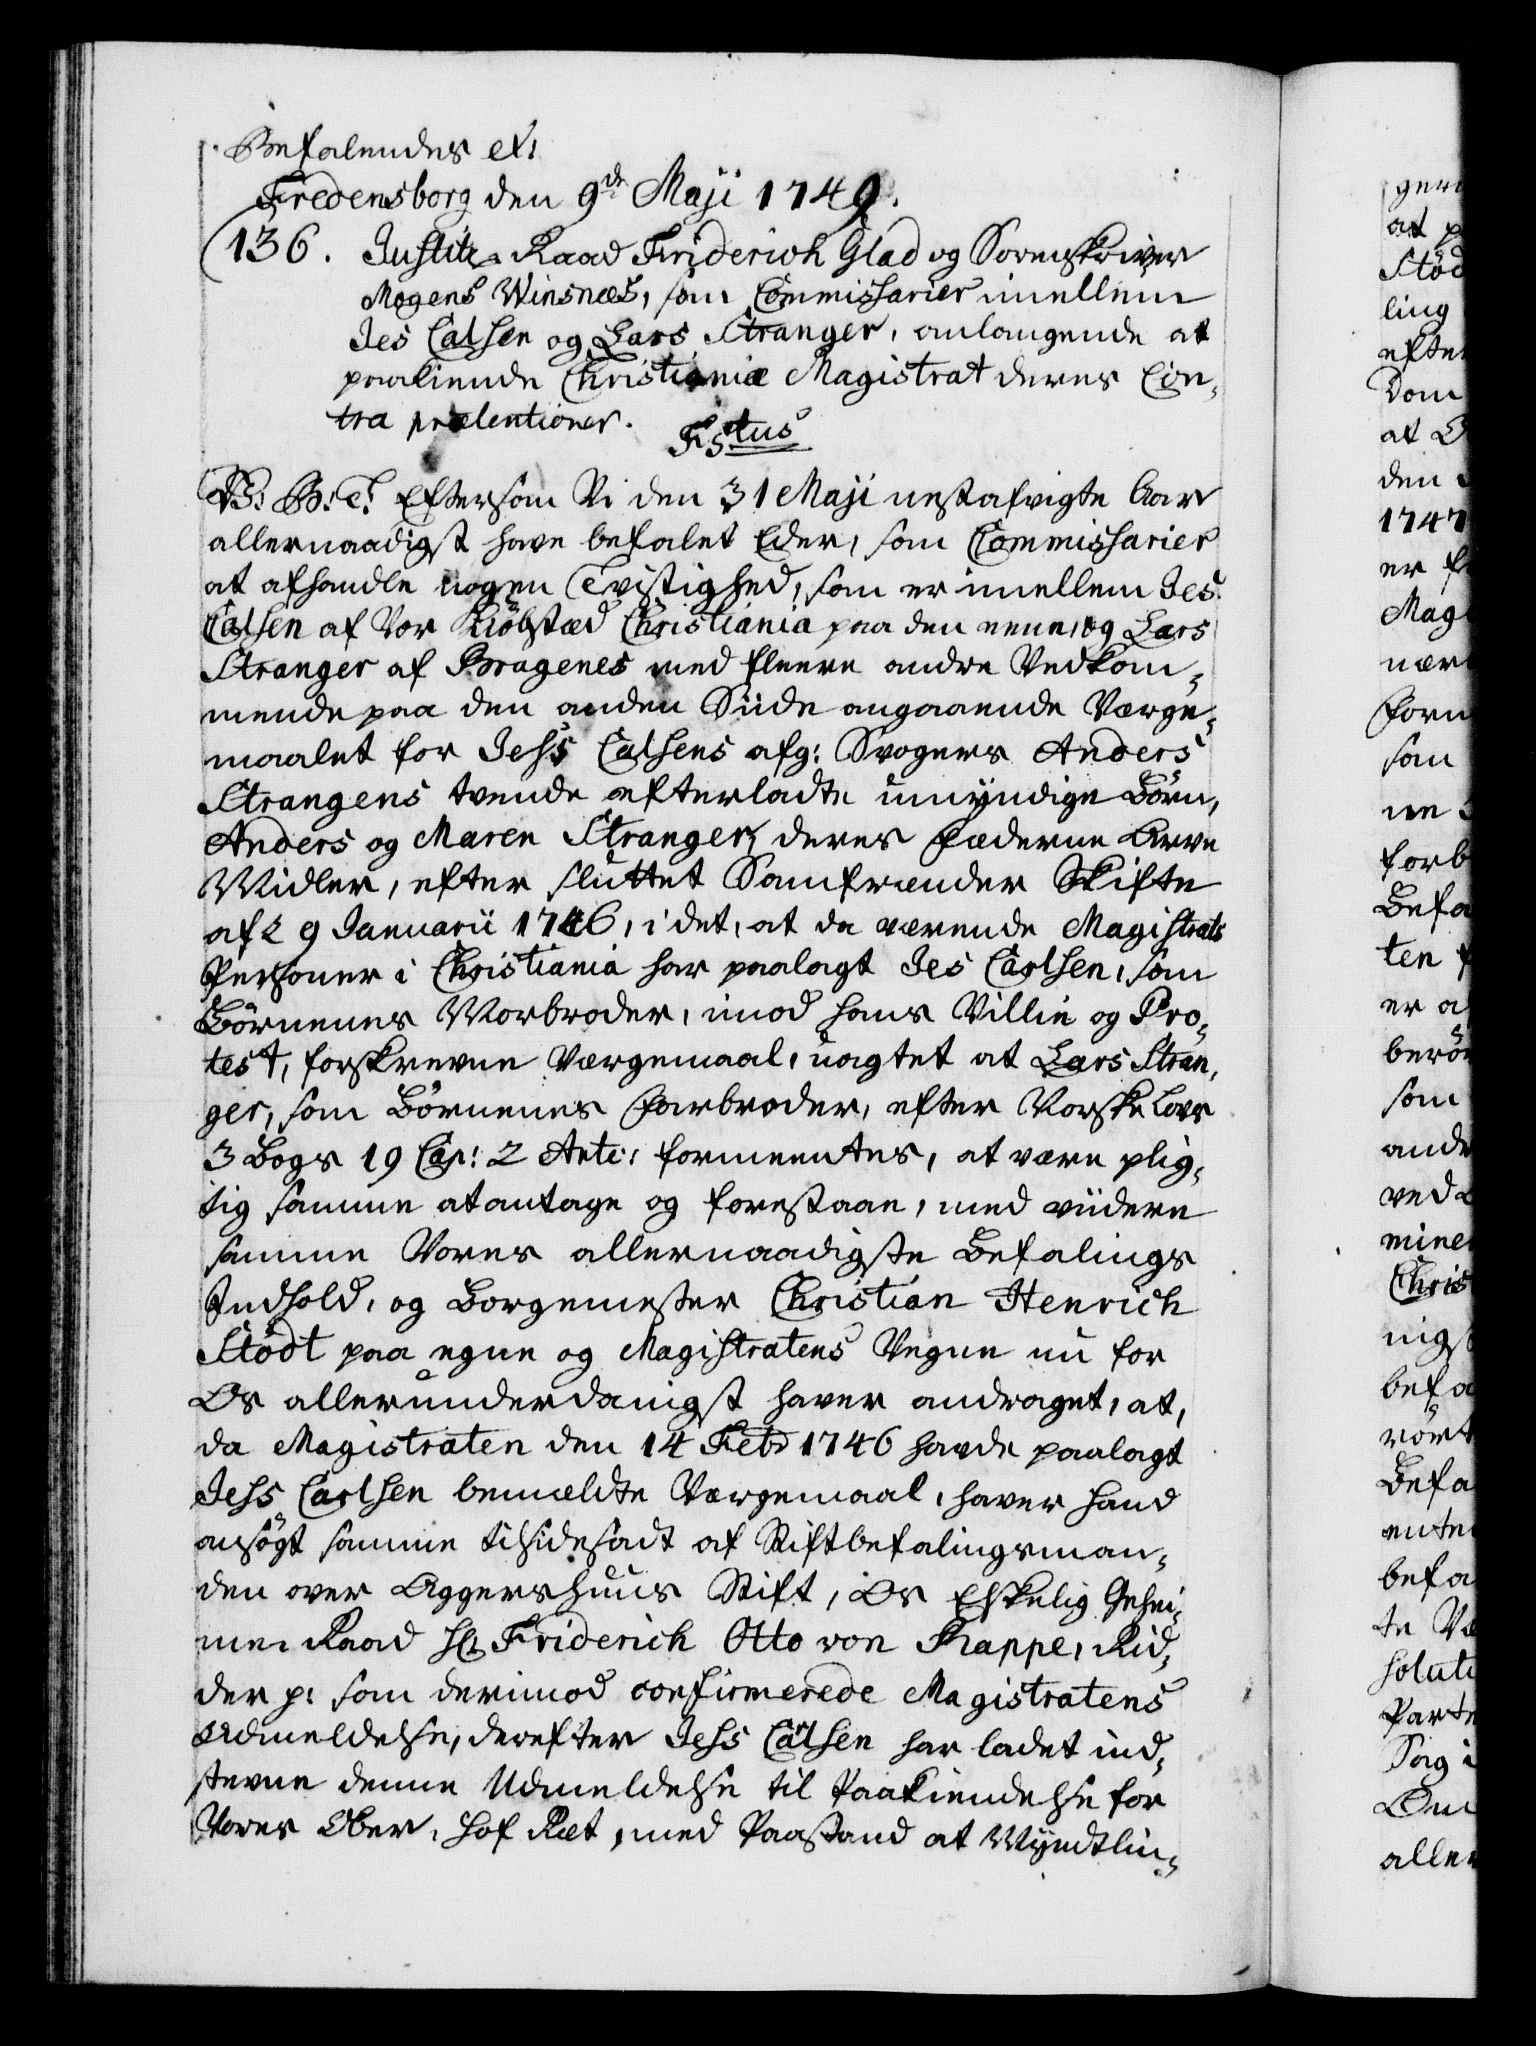 Befalendes etc:
Fredensborg den 9de Maji 1749.
136. Justitz-Raad Friderich Glad og Sorenskriver
Mogens Winsnes, som Commissarier imellem
Jes Calsen og Lars Stranger, anlangende at
paakiende Christianiæ Magistrat deres Con-
tra prætentioner. F5tus
V: G: T: Eftersom Vi den 31 Maji nestafvigte Aar
allernaadigst have befalet Eder, som Commissarier
at afhandle nogen Tvistighed, som er imellem Jes
Calsen af Vor Kiøbstæd Christiania paa den eene, og Lars
Stranger af Bragenes med fleere andre Vedkom-
mende paa den anden Siide angaaende Værge-
maalet for Jess Calsens afg: Svogers Anders
Strangens tvende efterladte umyndige Børn,
Anders og Maren Stranger, deres Fæderne Arve
Midler, efter sluttet Samfrænder Skifte
af 29 Januarii 1746, i det, at da værende Magistrats
Personer i Christiania har paalagt Jes Carlsen, som
Børnenes Morbroder, imod hans Villie og Pro-
test, forskrevne Værgemaal, uagtet at Lars Stran-
ger, som Børnenes Farbroder, efter Norske Lovs
3 Bogs 19 Cap: 2 Artc: formeentes, at være plig-
tig samme at antage og forestaae, med viidere
samme Vores allernaadigste Befalings
Indhold, og Borgemester Christian Henrich
Stödt paa egne og Magistratens Vegne nu for
Os allerunderdanigst haver andraget, at,
da Magistraten den 14 Febr 1746 havde paalagt
Jess Carlsen bemældte Værgemaal, haver hand
ansøgt samme tilsidesadt af Stiftbefalingsman-
den over Aggershuus Stift, Os Elskelig Gehei-
me Raad Hr Friderich Otto von Rappe, Rid-
der p: som derimod confirmerede Magistratens
Udmeldelse, derefter Jess Carlsen har ladet ind-
stevne denne Udmeldelse til Paakiendelse for
Vores Ober-Hof Ret, med Paastand at Myndtlin-